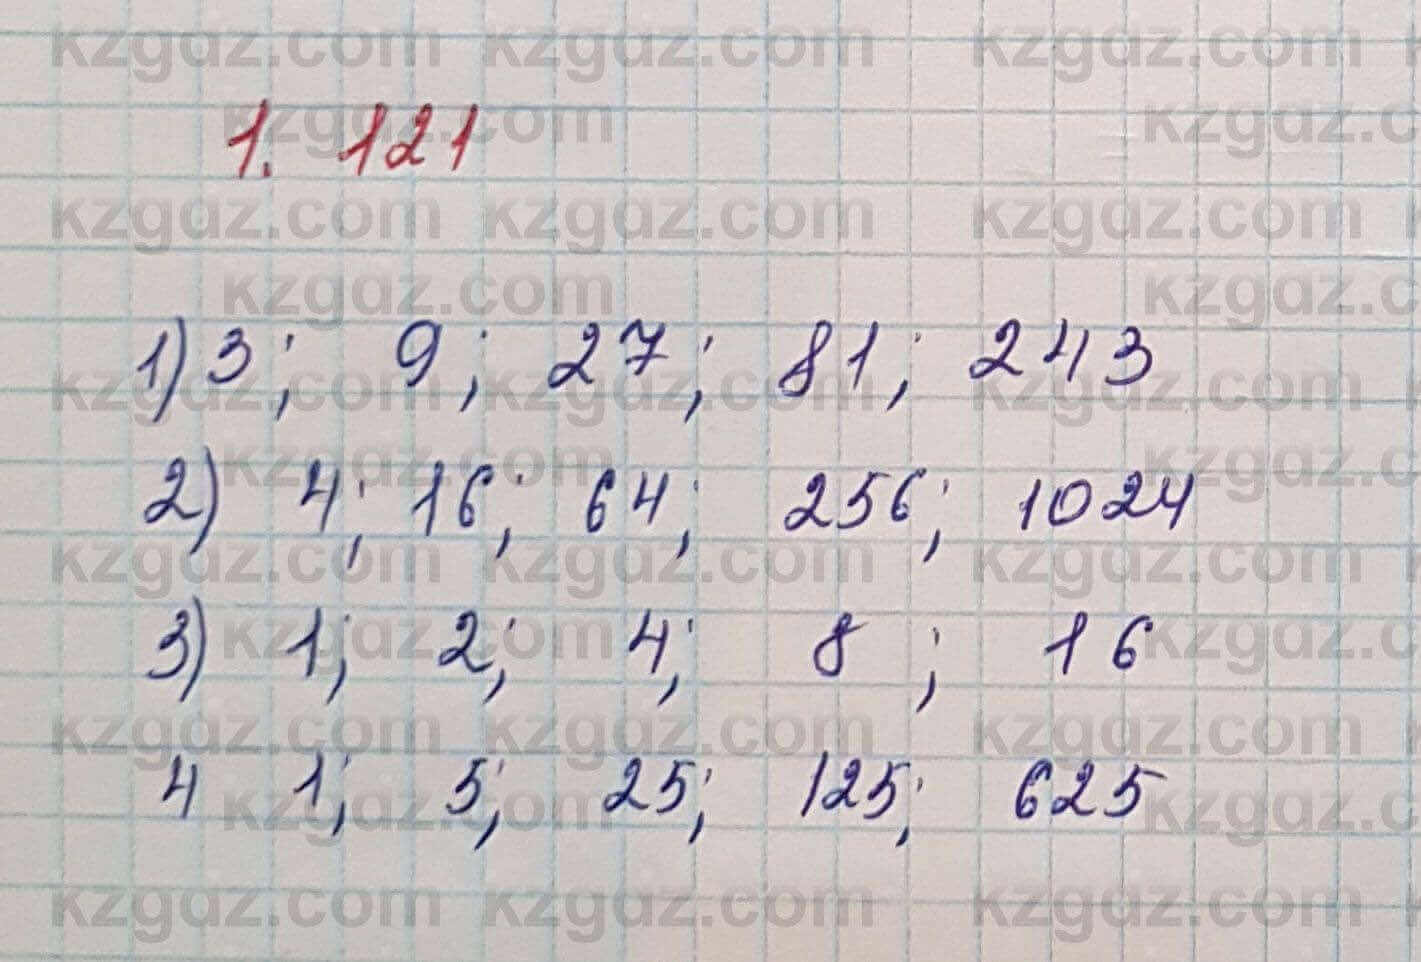 1. 121
1) 3; 9; 27; 81; 243
2) 4; 16; 64; 256; 1024
3) 1; 2; 4; 8; 16
4 1; 5; 25; 125; 625